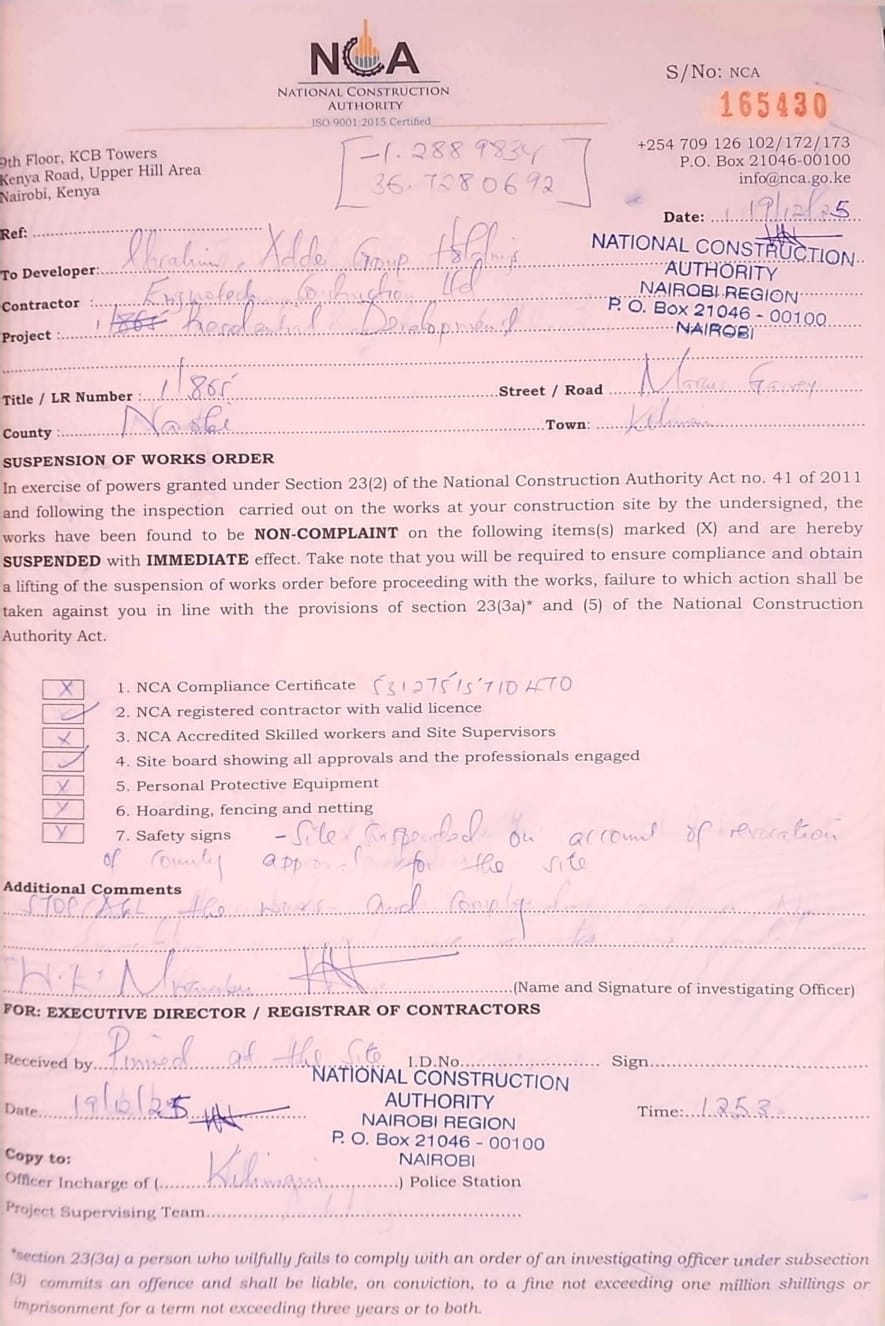 NCA
NATIONAL CONSTRUCTION
AUTHORITY
ISO 9001:2015 Certified
S/No: NCA
165430
9th Floor, KCB Towers
Kenya Road, Upper Hill Area
Nairobi, Kenya
-1.2889834
36.7280692
+254 709 126 102/172/173
P.O. Box 21046-00100
info@nca.go.ke
Date: 19/12/25
Ref:
NATIONAL CONSTRUCTION
AUTHORITY
NAIROBI REGION
P. O. Box 21046 - 00100
NAIROBI
To Developer: Ibrahim Xdde Group Holdings
Contractor : Construction Ltd
Project : Residential Development
Title / LR Number : 1/865 Street / Road Marcus Garvey
County : Nairobi Town: Kilimani
SUSPENSION OF WORKS ORDER
In exercise of powers granted under Section 23(2) of the National Construction Authority Act no. 41 of 2011
and following the inspection carried out on the works at your construction site by the undersigned, the
works have been found to be NON-COMPLAINT on the following items(s) marked (X) and are hereby
SUSPENDED with IMMEDIATE effect. Take note that you will be required to ensure compliance and obtain
a lifting of the suspension of works order before proceeding with the works, failure to which action shall be
taken against you in line with the provisions of section 23(3a)* and (5) of the National Construction
Authority Act.
X 1. NCA Compliance Certificate 53127515710470
✓ 2. NCA registered contractor with valid licence
X 3. NCA Accredited Skilled workers and Site Supervisors
✓ 4. Site board showing all approvals and the professionals engaged
X 5. Personal Protective Equipment
X 6. Hoarding, fencing and netting
X 7. Safety signs - Site suspended on account of revocation
of county approval for the site
Additional Comments
the works and comply
H.K. (Name and Signature of investigating Officer)
FOR: EXECUTIVE DIRECTOR / REGISTRAR OF CONTRACTORS
Received by Pinned at the Site I.D.No. Sign
NATIONAL CONSTRUCTION
AUTHORITY
NAIROBI REGION
P. O. Box 21046 - 00100
NAIROBI
Date 19/12/25 Time: 1253
Copy to:
Officer Incharge of (Kilimani) Police Station
Project Supervising Team
*section 23(3a) a person who wilfully fails to comply with an order of an investigating officer under subsection
(3) commits an offence and shall be liable, on conviction, to a fine not exceeding one million shillings or
imprisonment for a term not exceeding three years or to both.